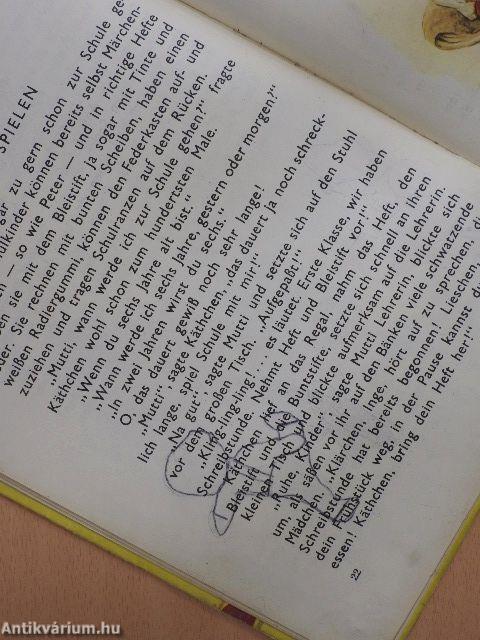 SPIELEN
gar zu gern schon zur Schule ge-
ulkinder können bereits selbst Märchen-
— so wie Peter — und in richtige Hefte
sie mit dem Bleistift, ja sogar mit Tinte und
Sie rechnen mit bunten Scheiben, haben einen
weißen Radiergummi, können den Federkasten auf- und
zuziehen und tragen Schulranzen auf dem Rücken.
„Mutti, wann werde ich zur Schule gehen?" fragte
Käthchen wohl schon zum hundertsten Male.
„Wenn du sechs Jahre alt bist."
„Wann werde ich sechs Jahre, gestern oder morgen?"
„In zwei Jahren wirst du sechs."
O, das dauert gewiß noch sehr lange!
„Mutti", sagte Käthchen, „das dauert ja noch schreck-
lich lange, spiel Schule mit mir!"
„Na gut", sagte Mutti und setzte sich auf den Stuhl
vor den großen Tisch. „Aufgepaßt!"
„Kling-ling-ling! ... es läutet. Erste Klasse, wir haben
Schreibstunde. Nehmt Heft und Bleistift vor!"
Käthchen lief an das Regal, nahm das Heft, den
Bleistift und die Buntstifte, setzte sich schnell an ihren
kleinen Tisch und blickte aufmerksam auf die Lehrerin.
„Ruhe, Kinder!" sagte Mutti Lehrerin, blickte sich
um, als säßen vor ihr auf den Bänken viele schwatzende
Mädchen. „Klärchen, Inge, hört auf zu sprechen, di
Schreibstunde hat bereits begonnen! Lieschen,
dein Frühstück weg, in der Pause kannst d
essen! Käthchen, bring dein Heft her!"
22
Antikvárium.hu